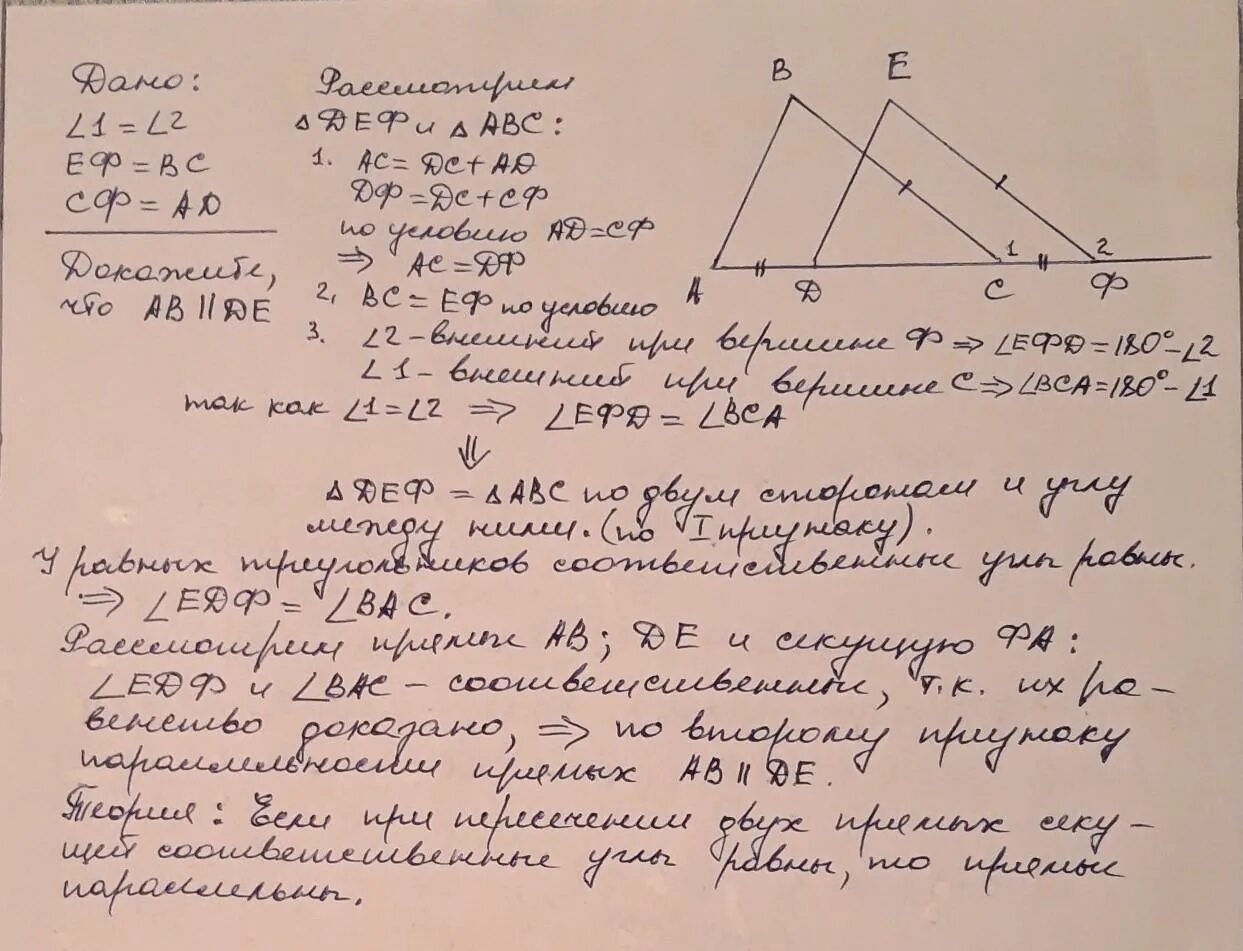 Дано:
∠1 = ∠2
ЕФ = ВС
СФ = AD
Докажите,
что AB || DE
Рассмотрим
△ DEФ и △ ABC:
1. AC = DC + AD
DФ = DC + CФ
по условию AD = CФ
⇒ AC = DФ
2. BC = EФ по условию
3. ∠2 - внешний при вершине Ф ⇒ ∠EФD = 180° - ∠2
∠1 - внешний при вершине C ⇒ ∠BCA = 180° - ∠1
так как ∠1 = ∠2 ⇒ ∠EФD = ∠BCA
⇓
△ DEФ = △ ABC по двум сторонам и углу
между ними. (по I признаку).
У равных треугольников соответственные углы равны.
⇒ ∠EDФ = ∠BAC.
Рассмотрим прямые AB; DE и секущую ФА:
∠EDФ и ∠BAC - соответственные, т.к. их ра-
венство доказано, ⇒ по второму признаку
параллельности прямых AB || DE.
Теория: Если при пересечении двух прямых секу-
щей соответственные углы равны, то прямые
параллельны.
B E
1 2
A D C Ф